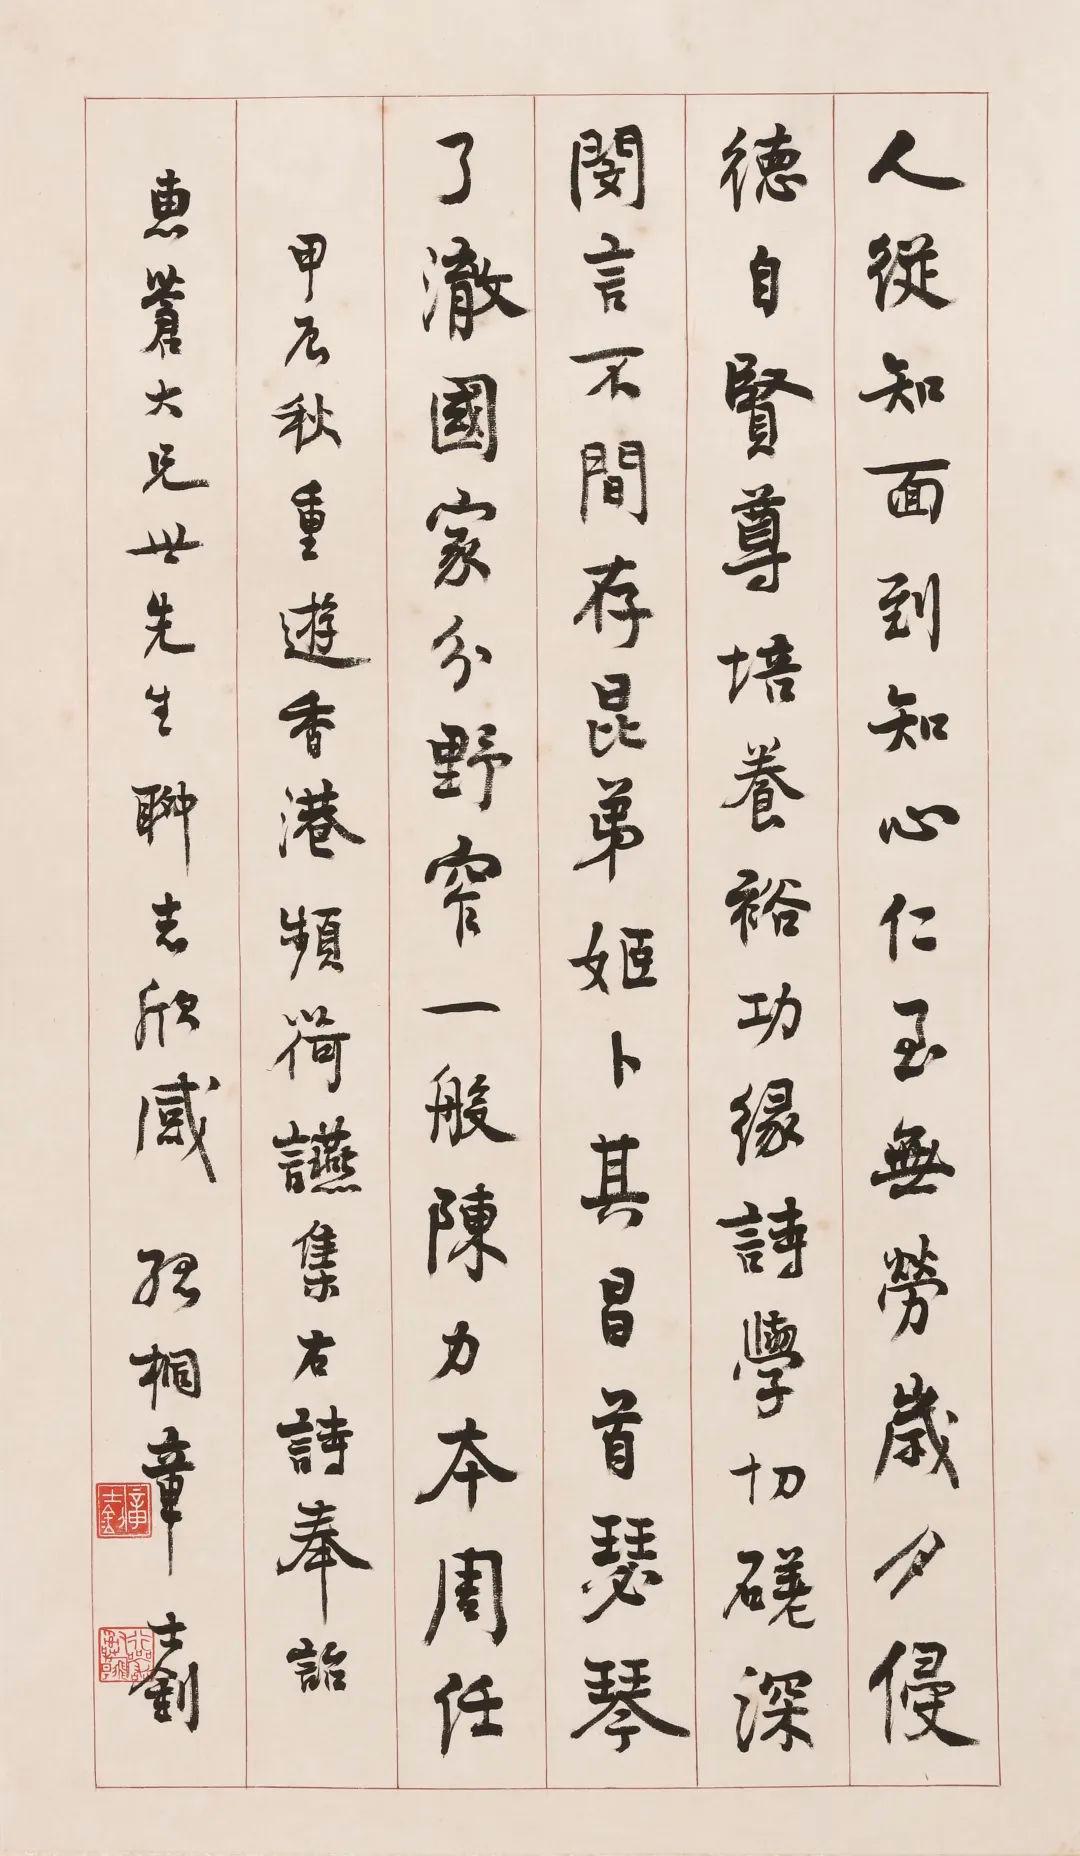 人從知面到知心仁至無勞歲夕侵
德自賢尊培養裕功緣詩學切磋深
閔言不間存昆弟姬卜其昌首瑟琴
了澈國家分野窄一般陳力本周任
甲辰秋重遊香港頻荷讌集右詩奉詒
惠蒼大兄世先生聊志欣感 孤桐章士釗